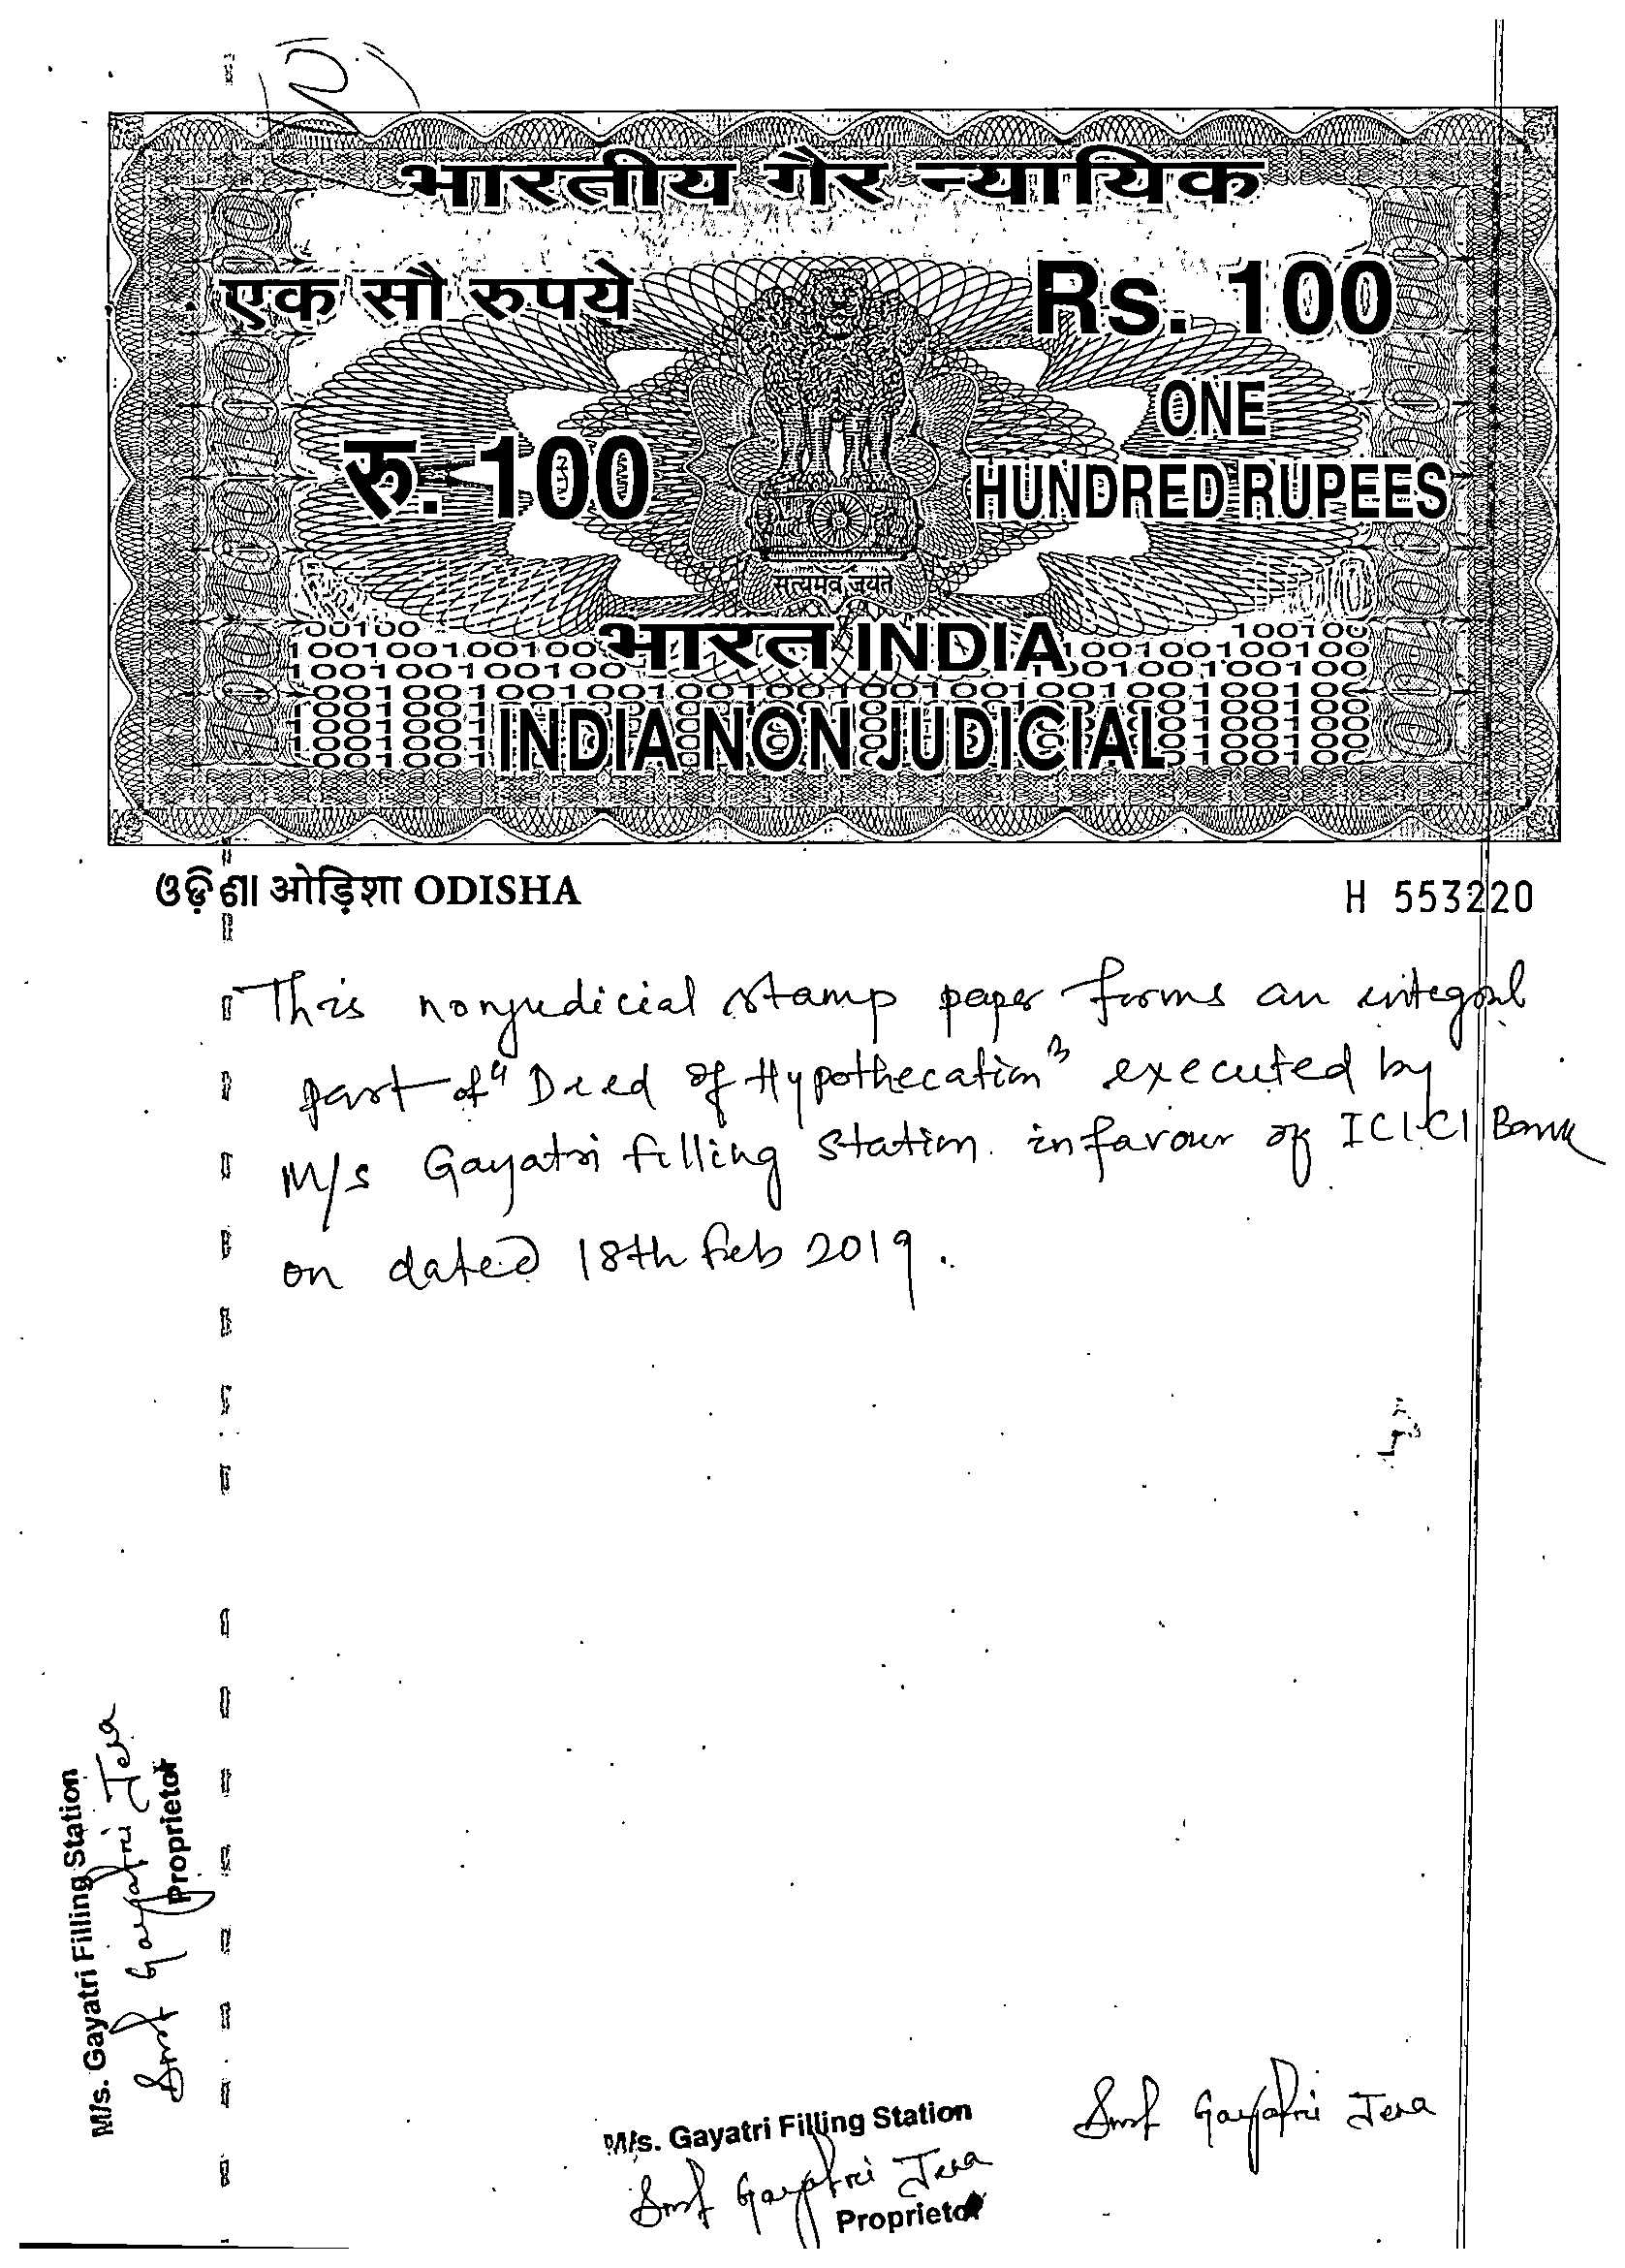 भारतीय गैर न्यायिक
एक सौ रुपये
Rs. 100
रु. 100
ONE
HUNDRED RUPEES
सत्यमेव जयते
भारत INDIA
INDIA NON JUDICIAL
ଓଡ଼ିଶା ओड़िशा ODISHA
H 553220
This nonjudicial stamp paper forms an integral
part of "Deed of Hypothecation" executed by
M/s Gayatri filling Station in favour of ICICI Bank
on dated 18th Feb 2019.
M/s. Gayatri Filling Station
Smt Gayatri Jena
Proprietor
M/s. Gayatri Filling Station
Smt Gayatri Jena
Proprietor
Smt Gayatri Jena